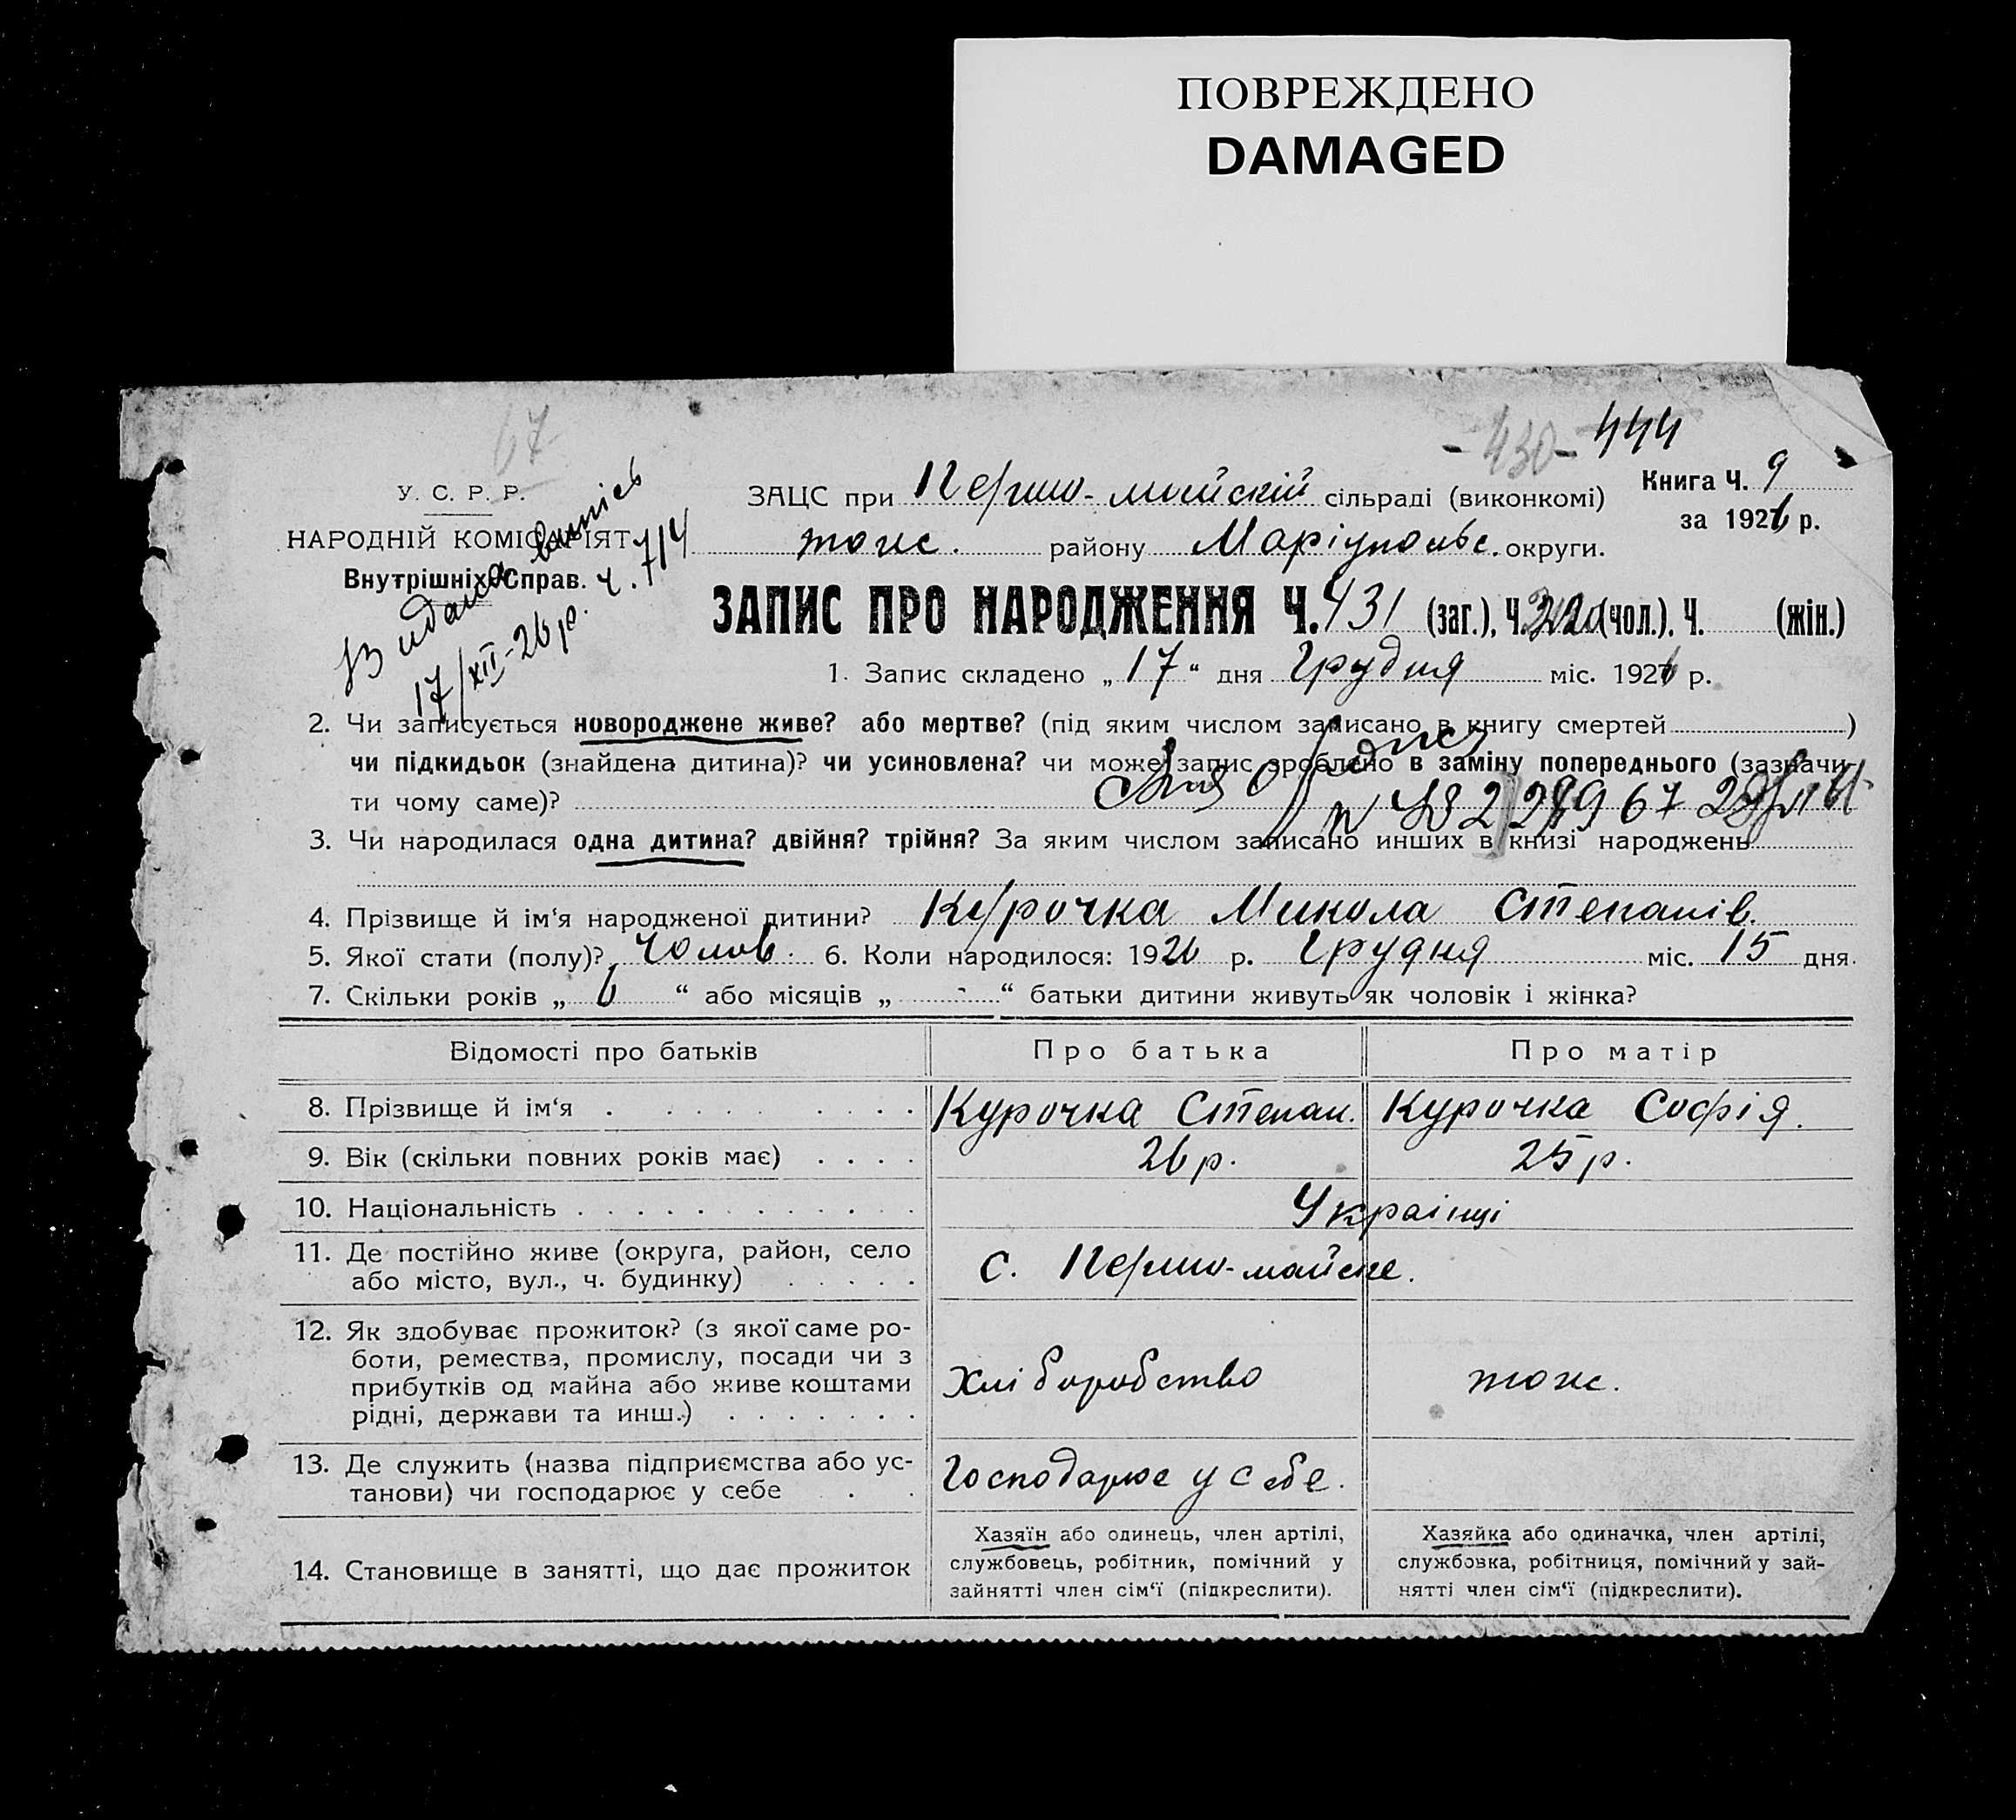 ПОВРЕЖДЕНО
DAMAGED
67
- 430 - 444
У. С. Р. Р.
НАРОДНІЙ КОМІСАРІЯТ
Внутрішніх Справ.
Видана випись
17/XII-26 р. ч. 714
ЗАЦС при Першо-майскій сільраді (виконкомі)
Книга Ч. 9
за 1926 р.
тоже. району Маріупольс. округи.
ЗАПИС ПРО НАРОДЖЕННЯ Ч. 431 (заг.), Ч. (чол.), Ч. (жін.)
1. Запис складено „ 17 “ дня Грудня міс. 1926 р.
2. Чи записується новороджене живе? або мертве? (під яким числом записано в книгу смертей )
чи підкидьок (знайдена дитина)? чи усиновлена? чи може запис зроблено в заміну попереднього (зазначи-
ти чому саме)?
3. Чи народилася одна дитина? двійня? трійня? За яким числом записано инших в книзі народжень
4. Прізвище й ім‘я народженої дитини? Курочка Микола Степанів.
5. Якої стати (полу)? чолов. 6. Коли народилося: 1926 р. Грудня міс. 15 дня.
7. Скільки років „ 6 “ або місяців „ - “ батьки дитини живуть як чоловік і жінка?
Відомості про батьків Про батька Про матір
8. Прізвище й ім‘я Курочка Степан. Курочка Софія.
9. Вік (скільки повних років має) 26 р. 25 р.
10. Національність Украінці
11. Де постійно живе (округа, район, село
або місто, вул., ч. будинку)
с. Першо-майске.
12. Як здобуває прожиток? (з якої саме ро-
боти, ремества, промислу, посади чи з
прибутків од майна або живе коштами
рідні, держави та инш.)
Хліборобство тоже.
13. Де служить (назва підприємства або ус-
танови) чи господарює у себе
Господарює у себе.
14. Становище в занятті, що дає прожиток
Хазяїн або одинець, член артілі,
службовець, робітник, помічний у
зайнятті член сім‘ї (підкреслити).
Хазяйка або одиначка, член артілі,
службовка, робітниця, помічний у зай-
нятті член сім‘ї (підкреслити).